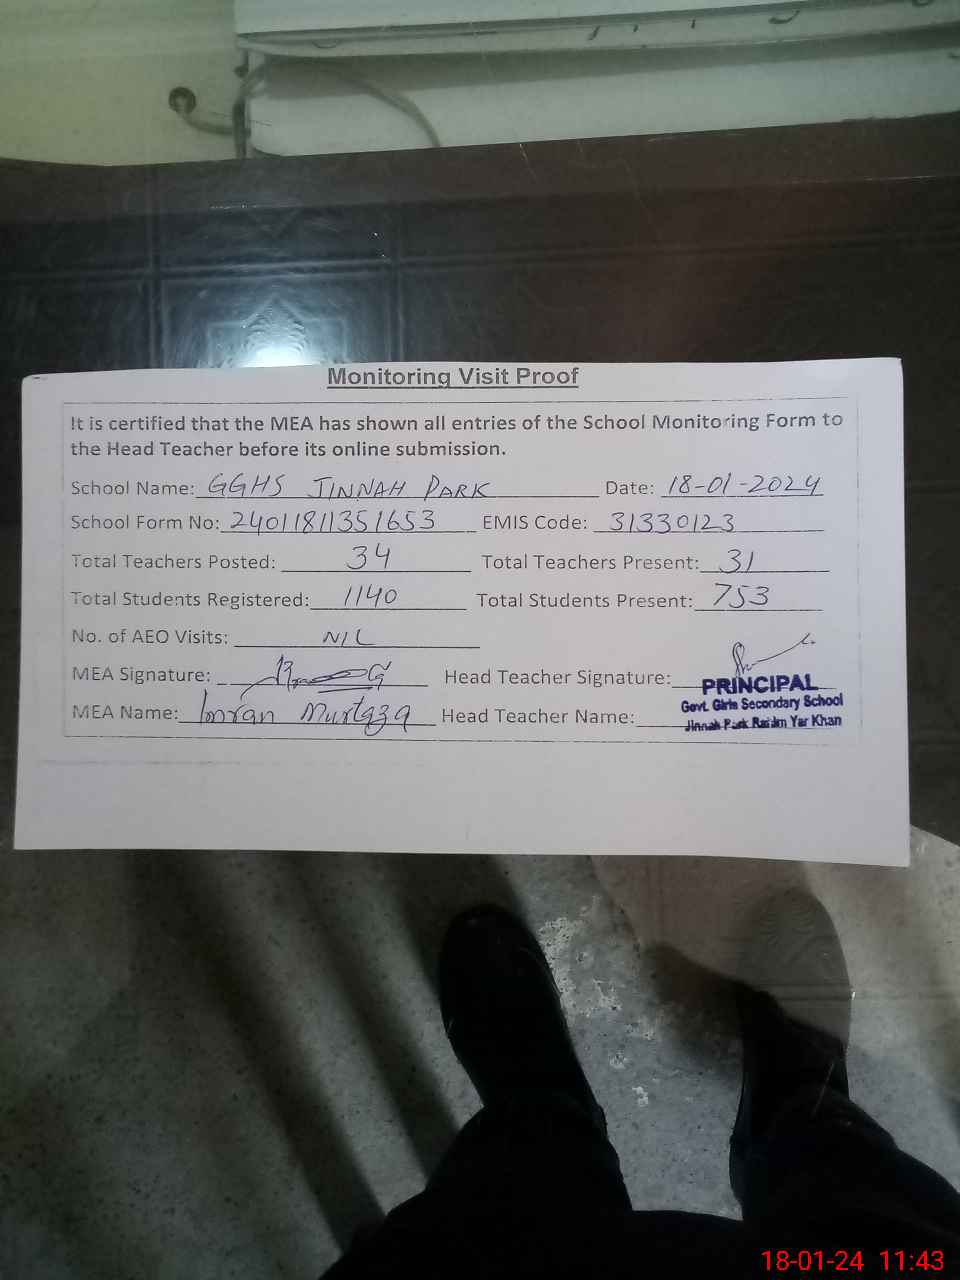 Monitoring Visit Proof
It is certified that the MEA has shown all entries of the School Monitoring Form to
the Head Teacher before its online submission.
School Name: GGHS JINNAH PARK Date: 18-01-2024
School Form No: 24011811351653 EMIS Code: 31330123
Total Teachers Posted: 34 Total Teachers Present: 31
Total Students Registered: 1140 Total Students Present: 753
No. of AEO Visits: NIL
MEA Signature: Head Teacher Signature:
PRINCIPAL
Govt. Girls Secondary School
Jinnah Park Rahim Yar Khan
MEA Name: Imran Murtaza Head Teacher Name:
18-01-24 11:43